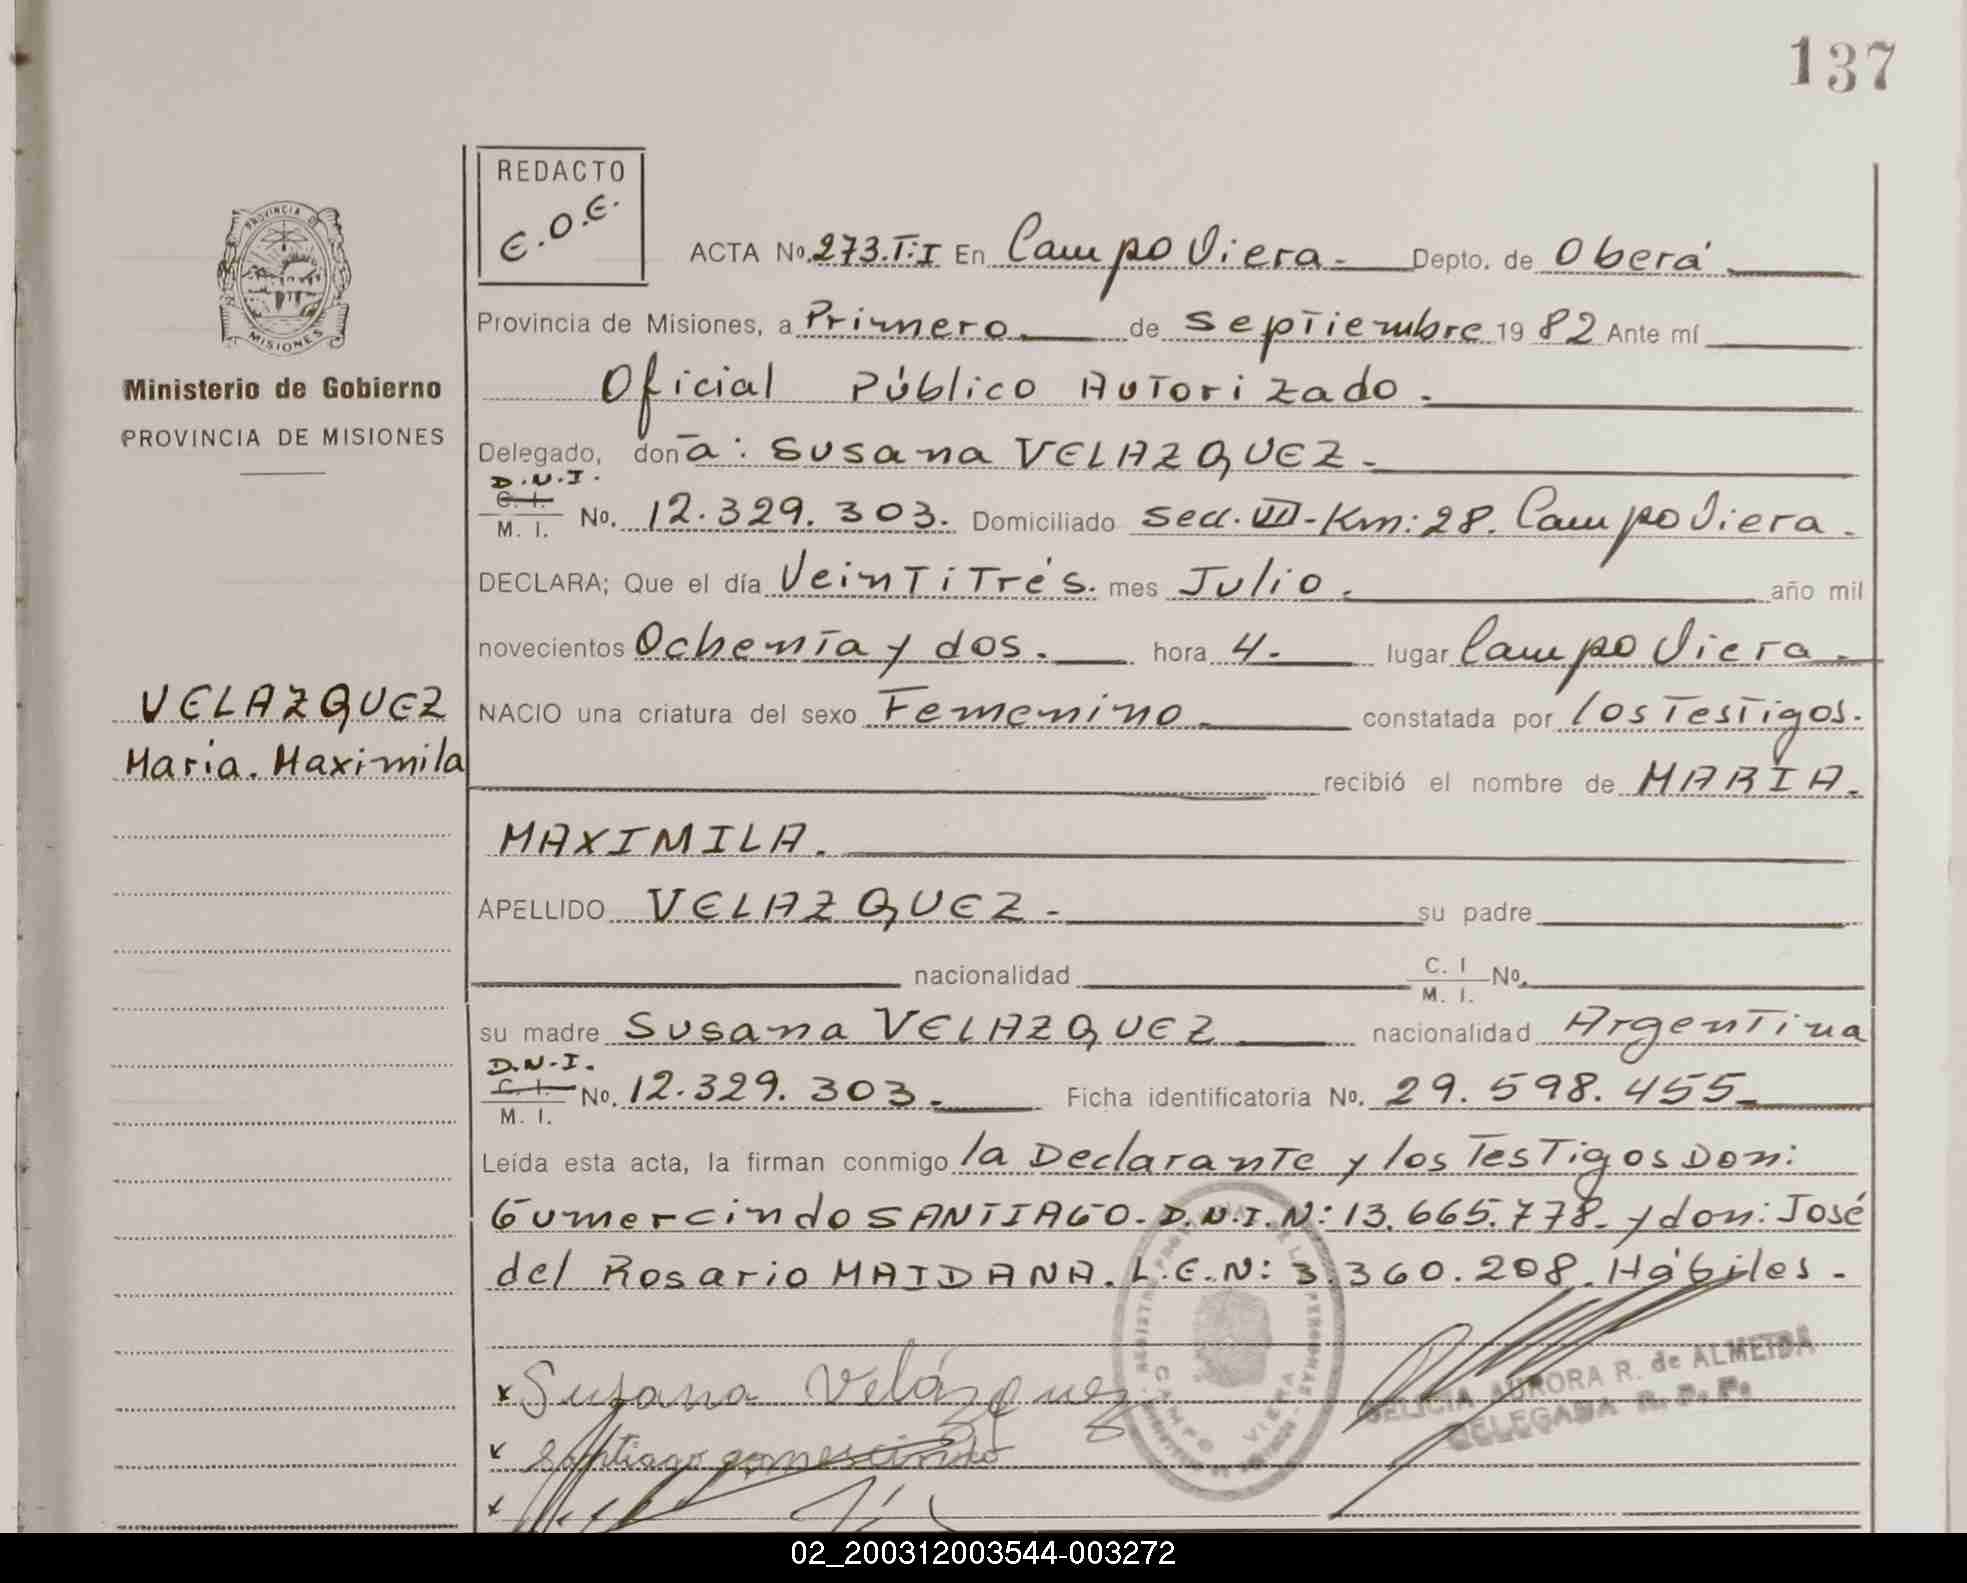 137
REDACTO
E.O.E.
PROVINCIA DE
MISIONES
ACTA No. 273.T:I En Campo Viera. Depto. de Oberá
Provincia de Misiones, a Primero. de Septiembre 19 82 Ante mí
Ministerio de Gobierno
Oficial Público Autorizado.
PROVINCIA DE MISIONES
Delegado, don a: Susana VELAZQUEZ.
D.N.I.
C. I.
M. I. No. 12.329.303. Domiciliado Secc. VIII-Km:28. Campo Viera.
DECLARA; Que el día Veintitrés. mes Julio. año mil
novecientos Ochenta y dos. hora 4. lugar Campo Viera.
VELAZQUEZ
NACIO una criatura del sexo Femenino constatada por los Testigos.
Maria. Maximila
recibió el nombre de MARIA.
MAXIMILA.
APELLIDO VELAZQUEZ. su padre
nacionalidad C. I M. I. No.
su madre Susana VELAZQUEZ nacionalidad Argentina
D.N.I.
C. I.
M. I. No. 12.329.303. Ficha identificatoria No. 29.598.455
Leída esta acta, la firman conmigo la Declarante y los Testigos Don:
Gumercindo SANTIAGO. D.N.I.N: 13.665.778. y don: José
del Rosario MAIDANA. L.E.N: 3.360.208. Hábiles.
x Susana Velázquez
CAMPO VIERA
FELICIA AURORA R. de ALMEIDA
DELEGADA R. P. P.
x Santiago gomescindo
x
02_200312003544-003272